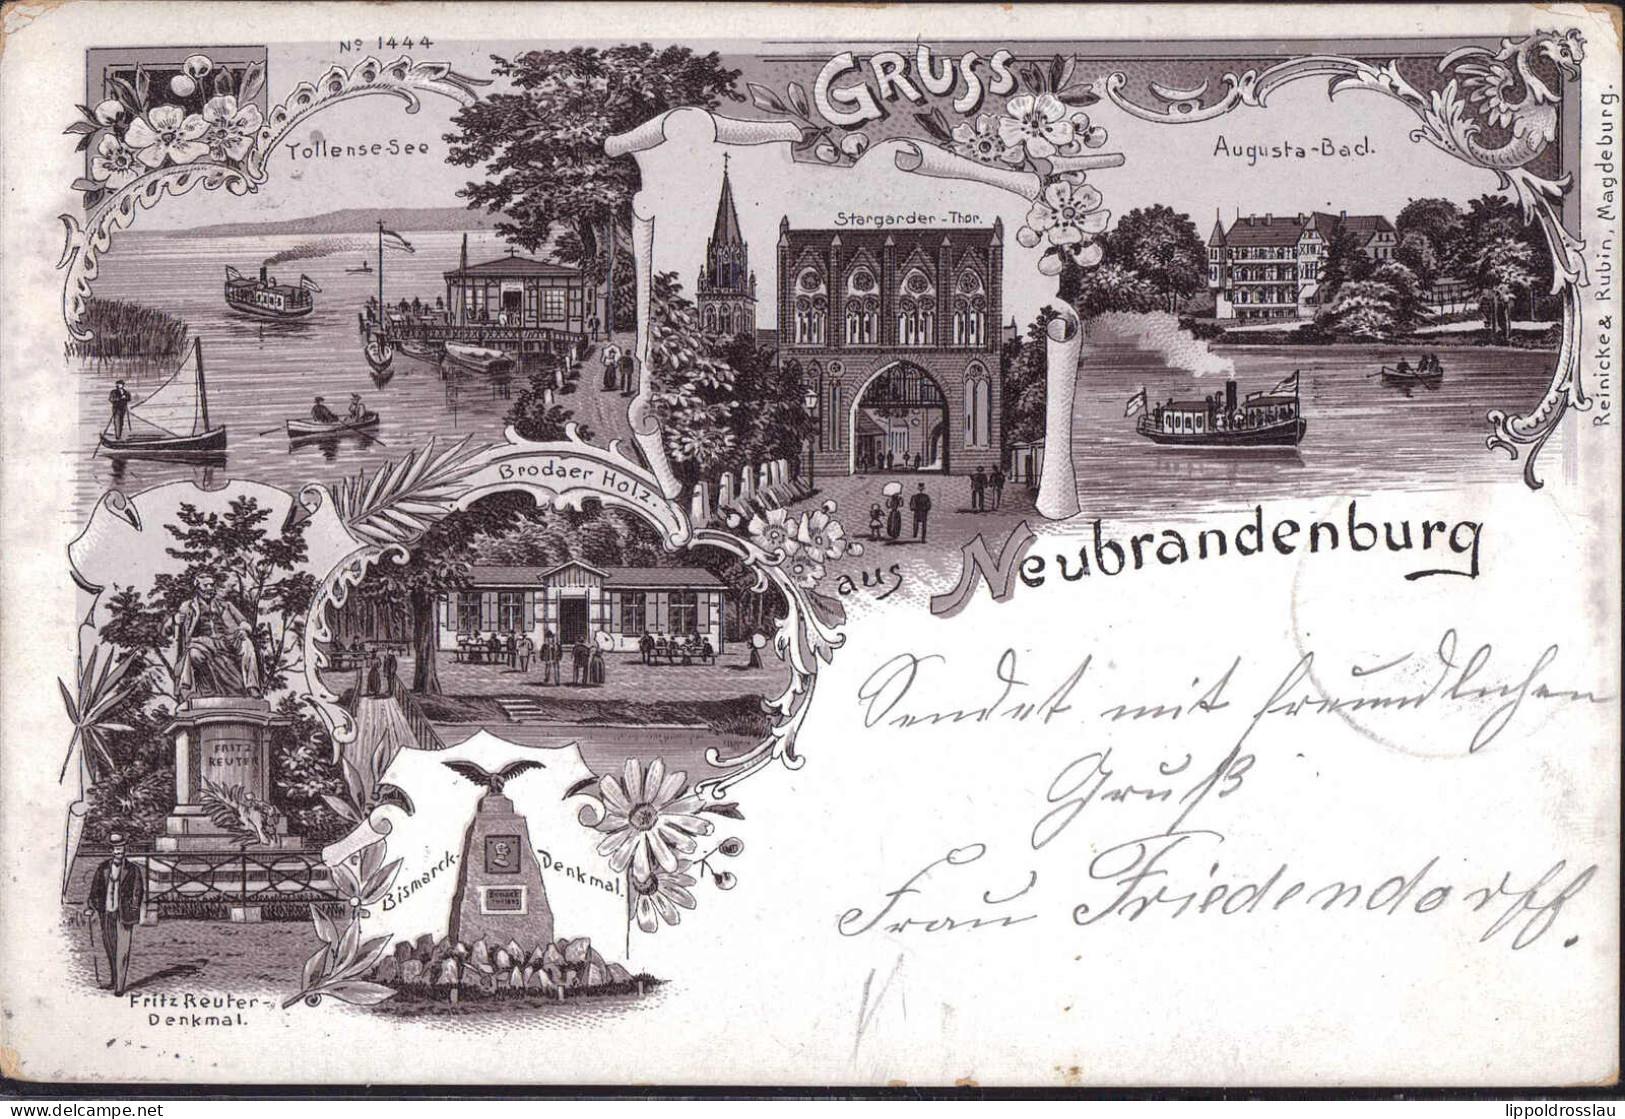 No 1444
GRUSS
Tollense-See
Augusta-Bad.
Stargarder-Thor.
Reinicke & Rubin, Magdeburg.
Brodaer Holz.
aus Neubrandenburg
Sendet mit freundlichen
Gruß
Frau Friedendorff.
FRITZ
REUTER
Bismarck-Denkmal.
Fritz Reuter-
Denkmal.
delcampe.net
lippoldrosslau